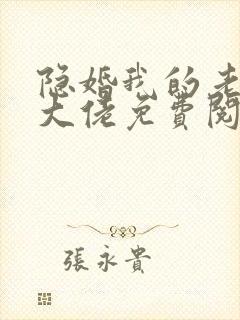 隐婚我的老
大佬免费阅
張永貴